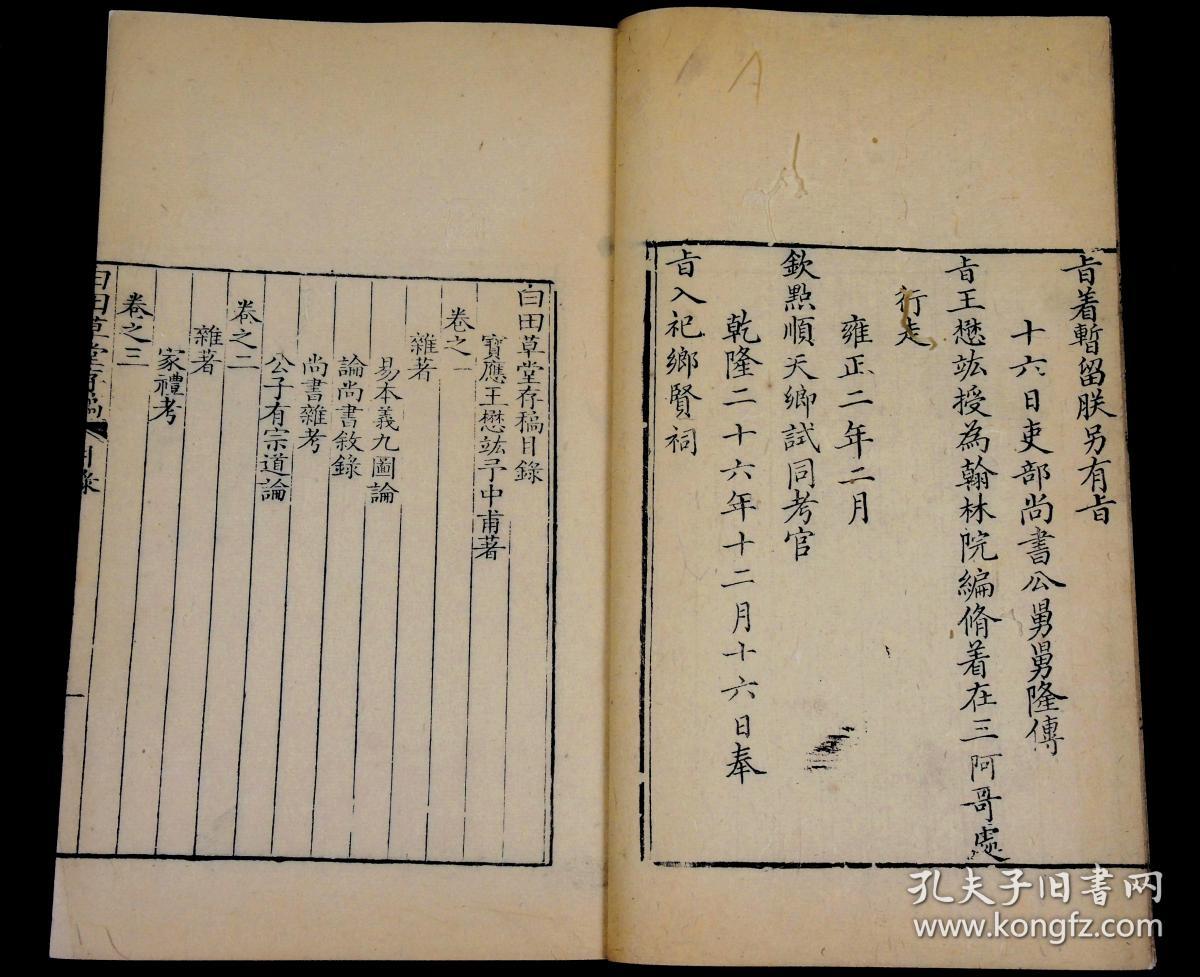 旨着暫留朕另有旨
十六日吏部尚書公舅舅隆傳
旨王懋竑授為翰林院編脩着在三阿哥處
行走
雍正二年二月
欽點順天鄉試同考官
乾隆二十六年十二月十六日奉
旨入祀鄉賢祠
白田草堂存稿目錄
寶應王懋竑予中甫著
卷之一
雜著
易本義九圖論
論尚書敘錄
尚書雜考
公子有宗道論
卷之二
雜著
家禮考
卷之三
白田草堂存稿 目錄 一
孔夫子旧书网
www.kongfz.com